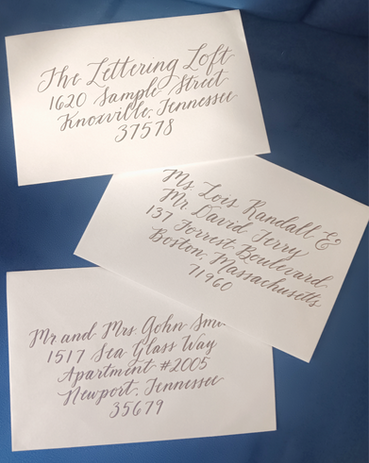 The Lettering Loft
1620 Sample Street
Knoxville, Tennessee
37578
Ms Lois Randall &
Mr David Terry
137 Forrest Boulevard
Boston, Massachusetts
71960
Mr and Mrs John
1517 Sea Glass Way
Apartment #2005
Newport, Tennessee
35679